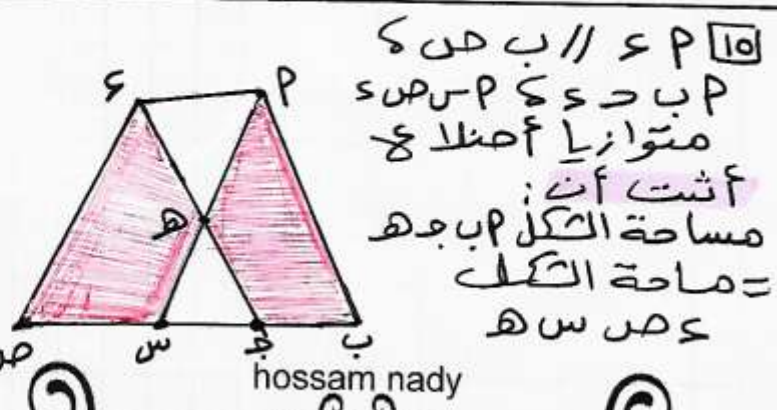 ١٥ ٩ ء // ب ص ،
٩ ب ح ء ، ٩ س ص ء
متوازيا أضلاع
أثبت أن :
مساحة الشكل ٩ ب جـ هـ
= مساحة الشكل
ء ص س هـ
ء ٩
هـ
ص س جـ ب
hossam nady